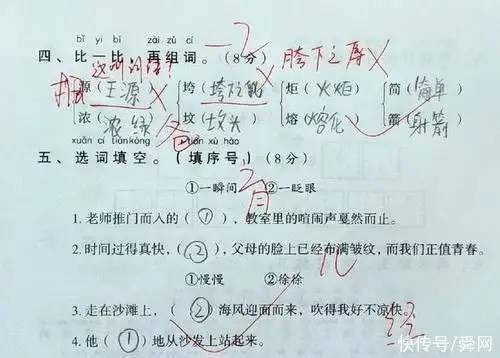 bǐ yi bǐ zài zǔ cí
四、比一比，再组词。（8分） -7 胯下之辱
这叫词语？
源（王源） 垮（垮 炬（火炬） 简（简单
浓（浓绿） 坟（坟头 熔（熔化） 箭（射箭
xuǎn cí tiánkòng tián xù hào
五、选词填空。（填序号）（8分）
①一瞬间 ②一眨眼
1. 老师推门而入的（①），教室里的喧闹声戛然而止。
2. 时间过得真快，（②），父母的脸上已经布满皱纹，而我们正值青春。
①慢慢 ②徐徐
3. 走在沙滩上，（②）海风迎面而来，吹得我好不凉快。
4. 他（①）地从沙发上站起来。
快传号/舜网